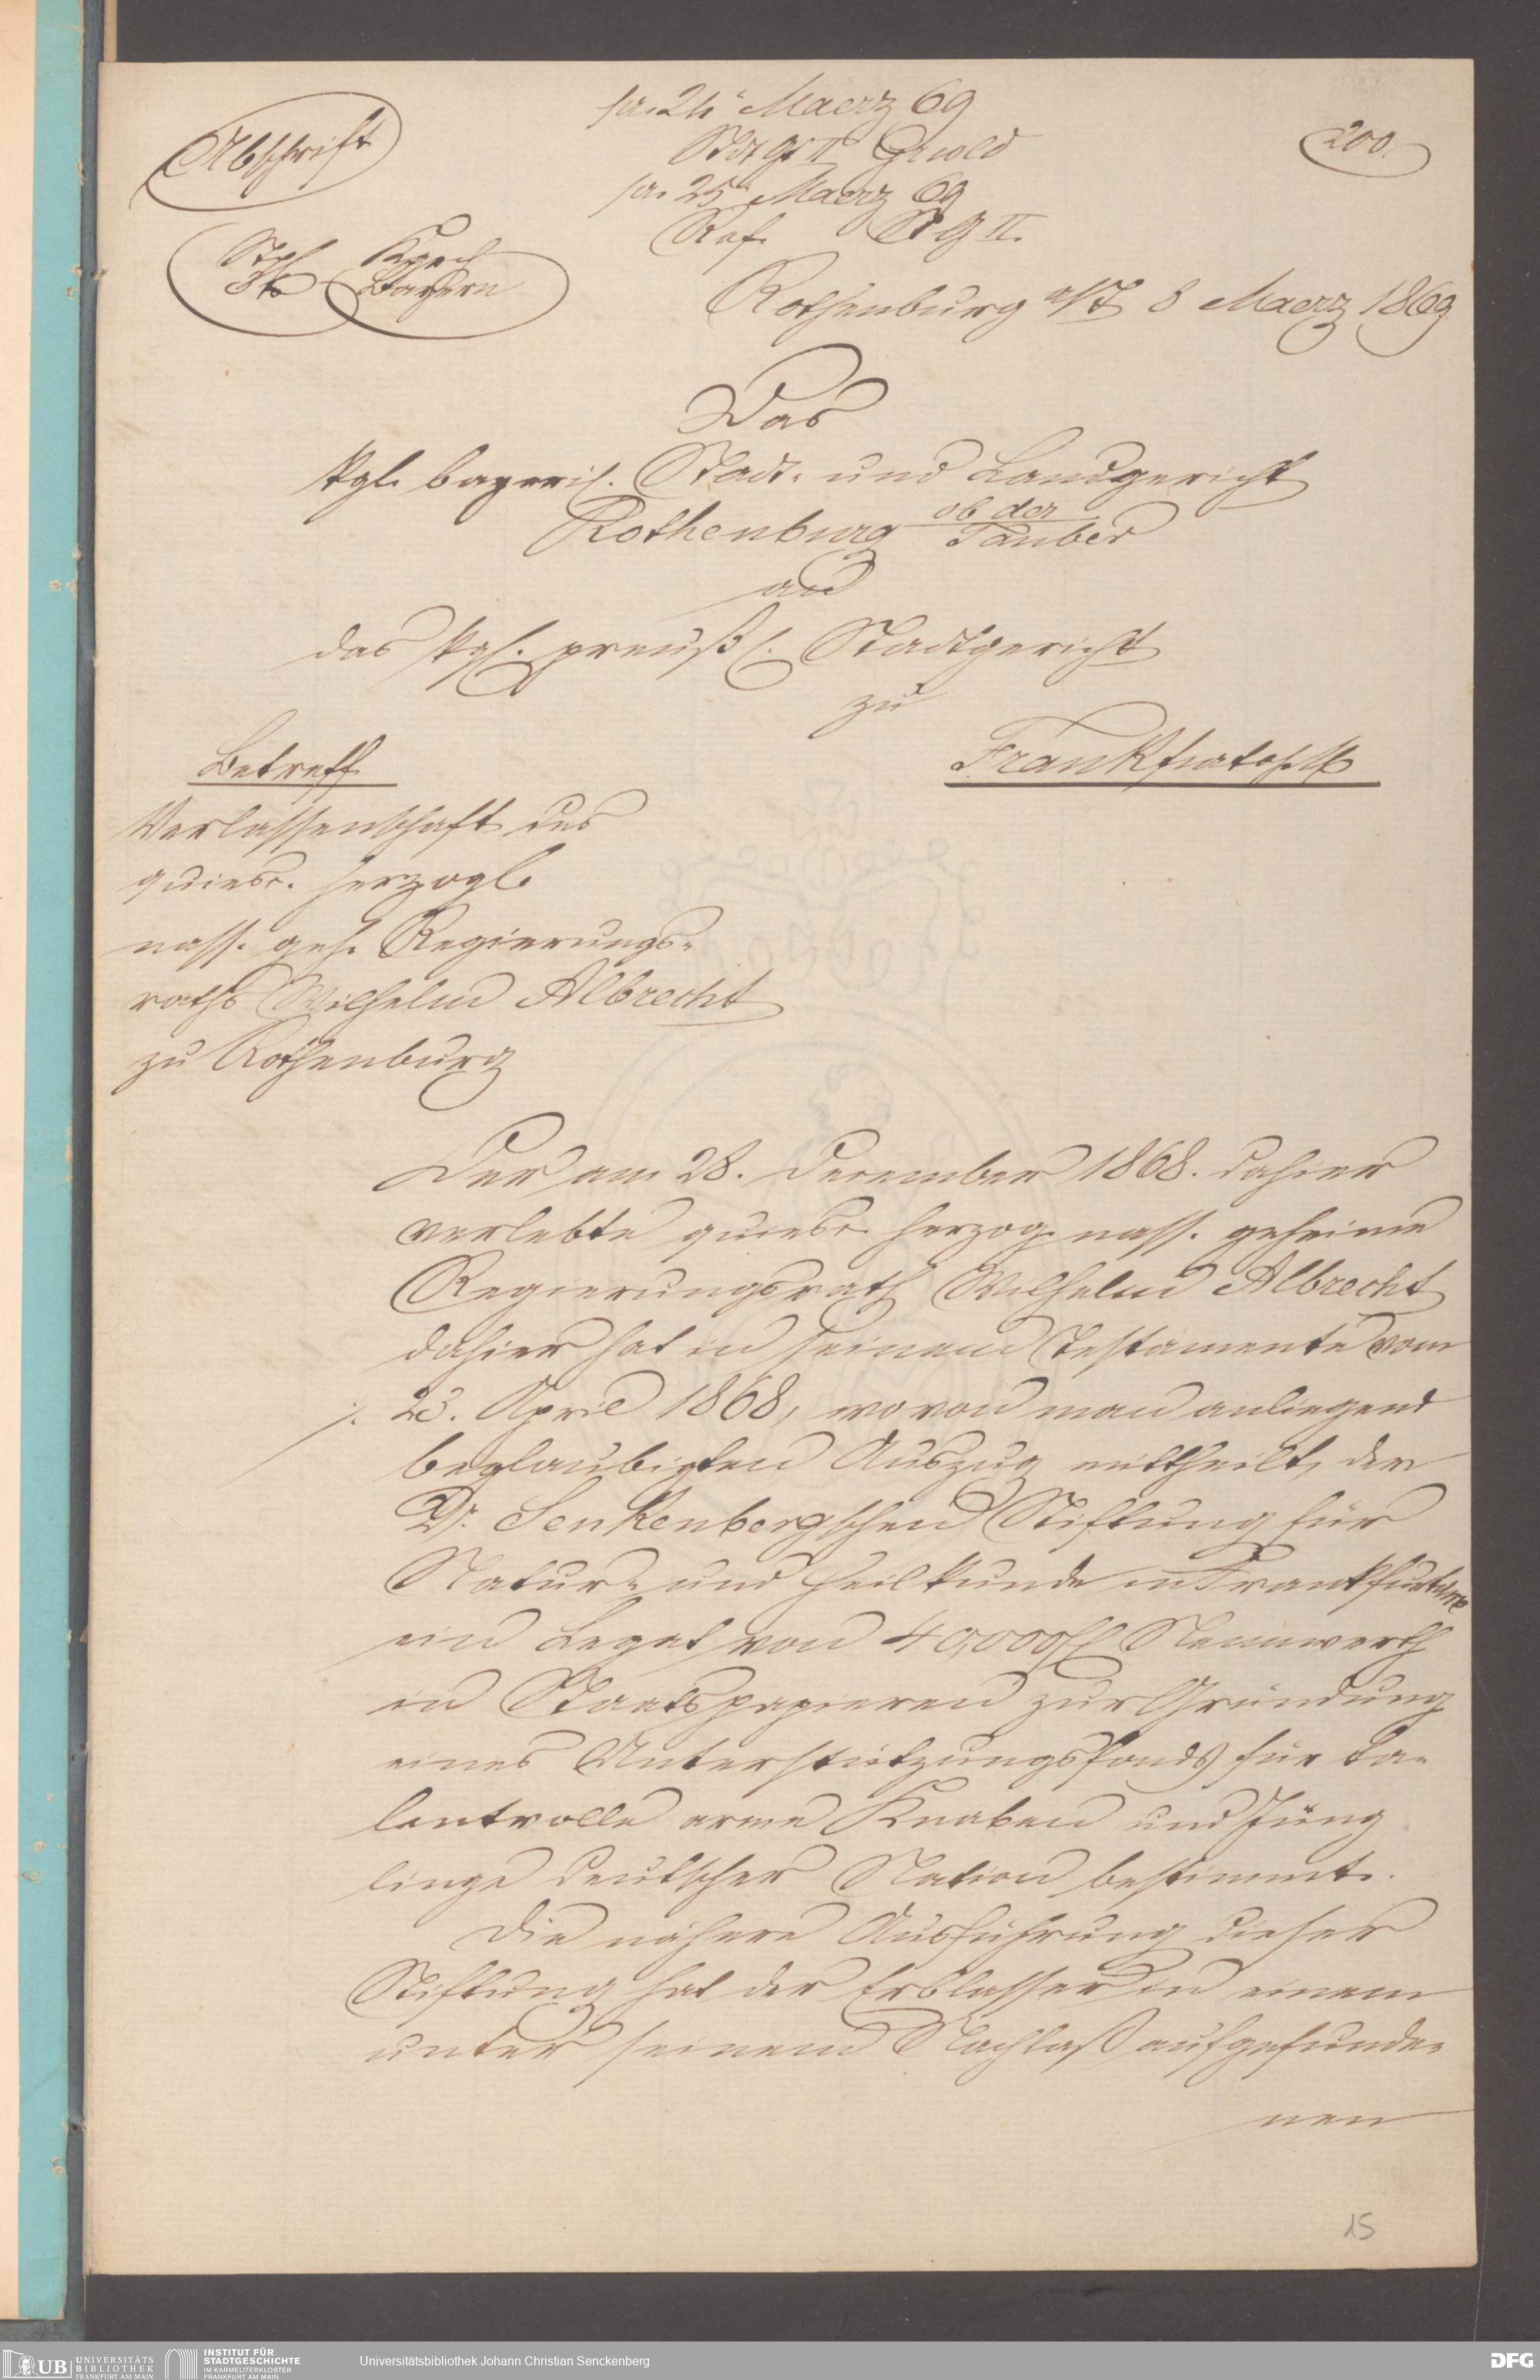 Abschrift
pr. 24 Maerz 69
StdGr II Ewald
pr. 25 Maerz 69
Ref. StG II.
200.
Stpl Kgrch
3 kr Bayern
Rothenburg a/T 8 Maerz 1869
Das
kgl. bayeris. Stadt- und Landgericht
Rothenburg ob der Tauber
an
das kgl. preuß. Stadtgericht
zu
Frankfurt a/M
Betreff
Verlassenschaft des
quiesc. herzogl.
nass. geh. Regierungs-
raths Wilhelm Albrecht
zu Rothenburg
Der am 28. December 1868. dahier
verlebte quiesc. herzog. nass. geheime
Regierungsrath Wilhelm Albrecht
dahier hat in seinem Testamente vom
./. 23. April 1868, wovon man anliegend
beglaubigten Auszug mittheilt, der
Dr. Senkenbergschen Stiftung für
Natur- und Heilkunde in Frankfurt a/M
ein Legat von 40,000 fl Nennwerth
in Staatspapieren zur Gründung
eines Unterstützungsfonds für ta-
lentvolle arme Knaben und Jüng-
linge deutscher Nation bestimmt.
Die nähere Ausführung dieser
Stiftung hat der Erblasser in einem
unter seinem Nachlaß aufgefunde-
nen
15
UB UNIVERSITÄTS
BIBLIOTHEK
FRANKFURT AM MAIN
INSTITUT FÜR
STADTGESCHICHTE
IM KARMELITERKLOSTER
FRANKFURT AM MAIN
Universitätsbibliothek Johann Christian Senckenberg
DFG